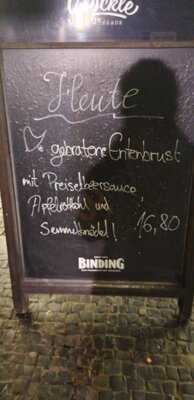 Heute
gebratene Entenbrust
mit Preiselbeersauce,
Apfelrotkohl und
Semmelknödel! 16,80
BINDING